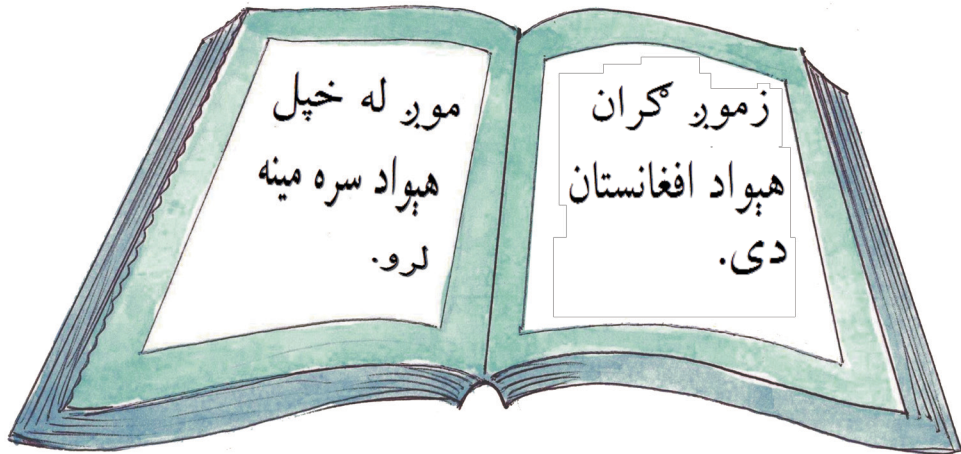 زموږ ګران
هېواد افغانستان
دی.
موږ له خپل
هېواد سره مينه
لرو.